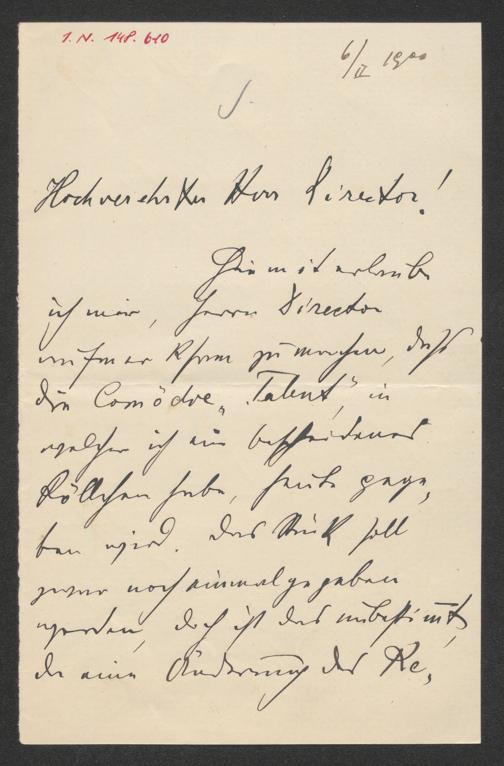 I. N. 148.610
6/II 1900
Hochverehrter Herr Director!
Hiemit erlaube
ich mir, Herrn Director
aufmerksam zu machen, daß
die Comödie „Talent“, in
welcher ich ein bescheidenes
Röllchen habe, heute gege-
ben wird. Das Stück soll
zwar noch einmal gegeben
werden, doch ist das unbestimmt,
da eine Änderung des Re-